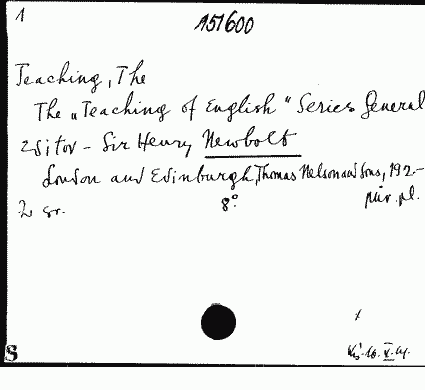 1
A51600
Teaching, The
The „Teaching of English" Series General
Editor - Sir Henry Newbolt
London and Edinburgh, Thomas Nelson and Sons, 192.-
2 sv. 8° pův. pl.
S